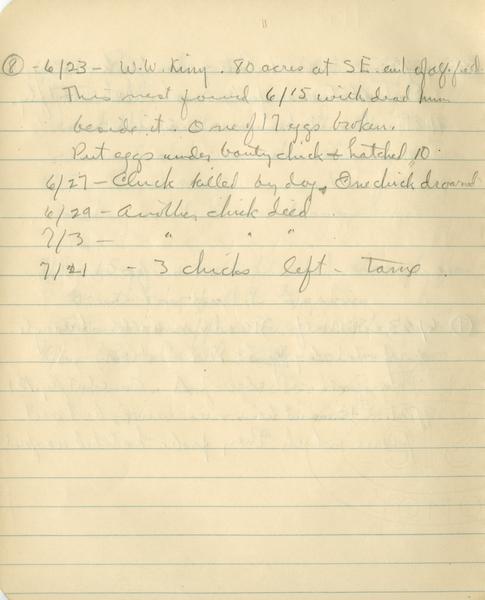 ⑧ - 6/23 - W.W. King. 80 acres at S E. end of alf. field
This nest found 6/15 with dead hen
beside it. One of 17 eggs broken.
Put eggs under banty chick & hatched 10.
6/27 - Cluck killed by dog. One chick drowned
6/29 - Another chick died.
7/3 - " " "
7/21 - 3 chicks left - Tame.